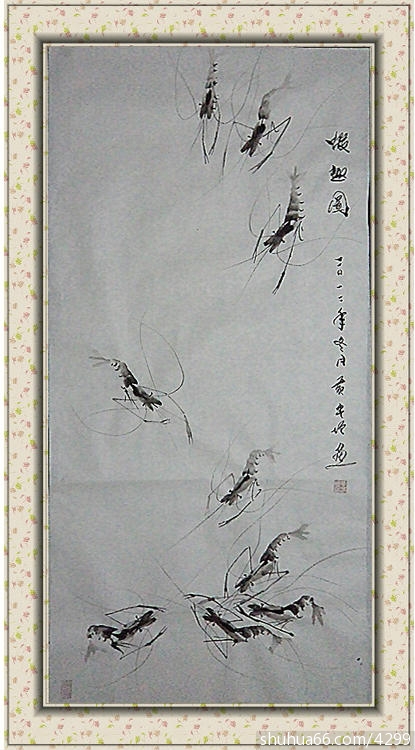 蝦趣圖
二〇一二年冬月黄画
shuhua66.com/4299